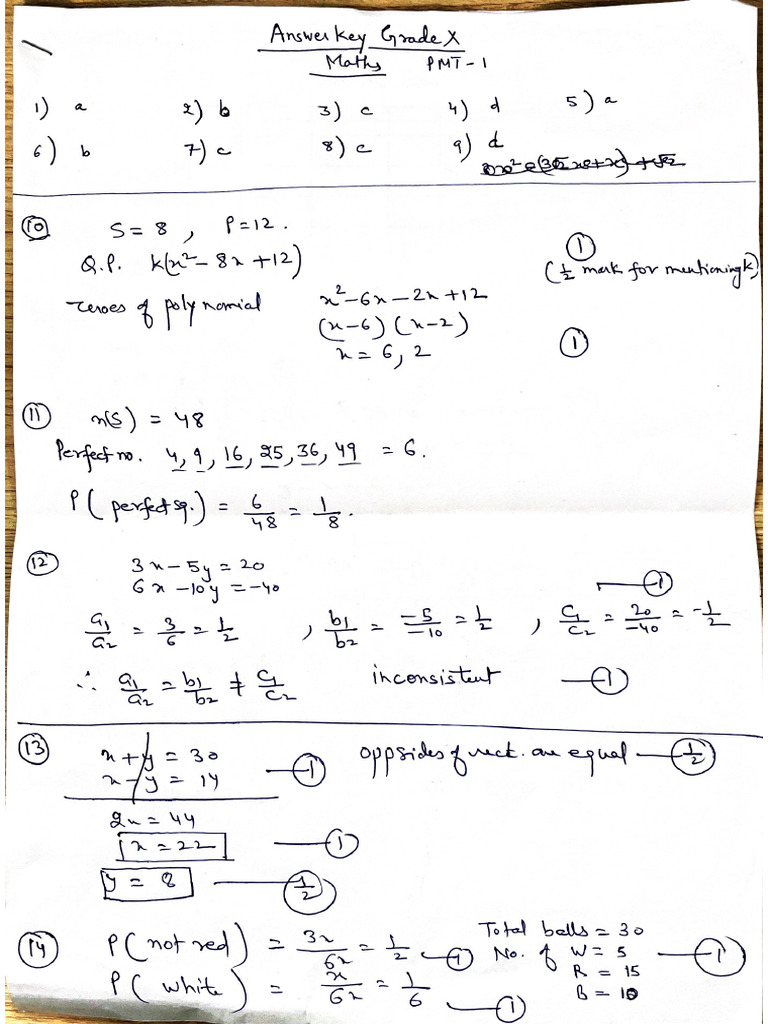 Answer key Grade X
Maths PMT-1
1) a 2) b 3) c 4) d 5) a
6) b 7) c 8) c 9) d
⑩ S = 8 , P = 12 .
Q.P. k(x² - 8x + 12) ①
(½ mark for mentioning k)
zeroes of polynomial x² - 6x - 2x + 12
(x-6) (x-2)
x = 6, 2 ①
⑪ n(S) = 48
Perfect no. 4, 9, 16, 25, 36, 49 = 6.
P (perfect sq.) = 6/48 = 1/8.
⑫ 3x - 5y = 20
6x - 10y = -40 —①
a₁/a₂ = 3/6 = 1/2 , b₁/b₂ = -5/-10 = 1/2 , c₁/c₂ = 20/-40 = -1/2
∴ a₁/a₂ = b₁/b₂ ≠ c₁/c₂ inconsistent —①
⑬ x + y = 30 opp sides of rect. are equal —(½)
x - y = 14 —①
2x = 44
x = 22 —①
y = 8 —(½)
⑭ P (not red) = 3x/6x = 1/2 —① Total balls = 30
No. of W = 5 —①
R = 15
P ( white ) = x/6x = 1/6 —① B = 10